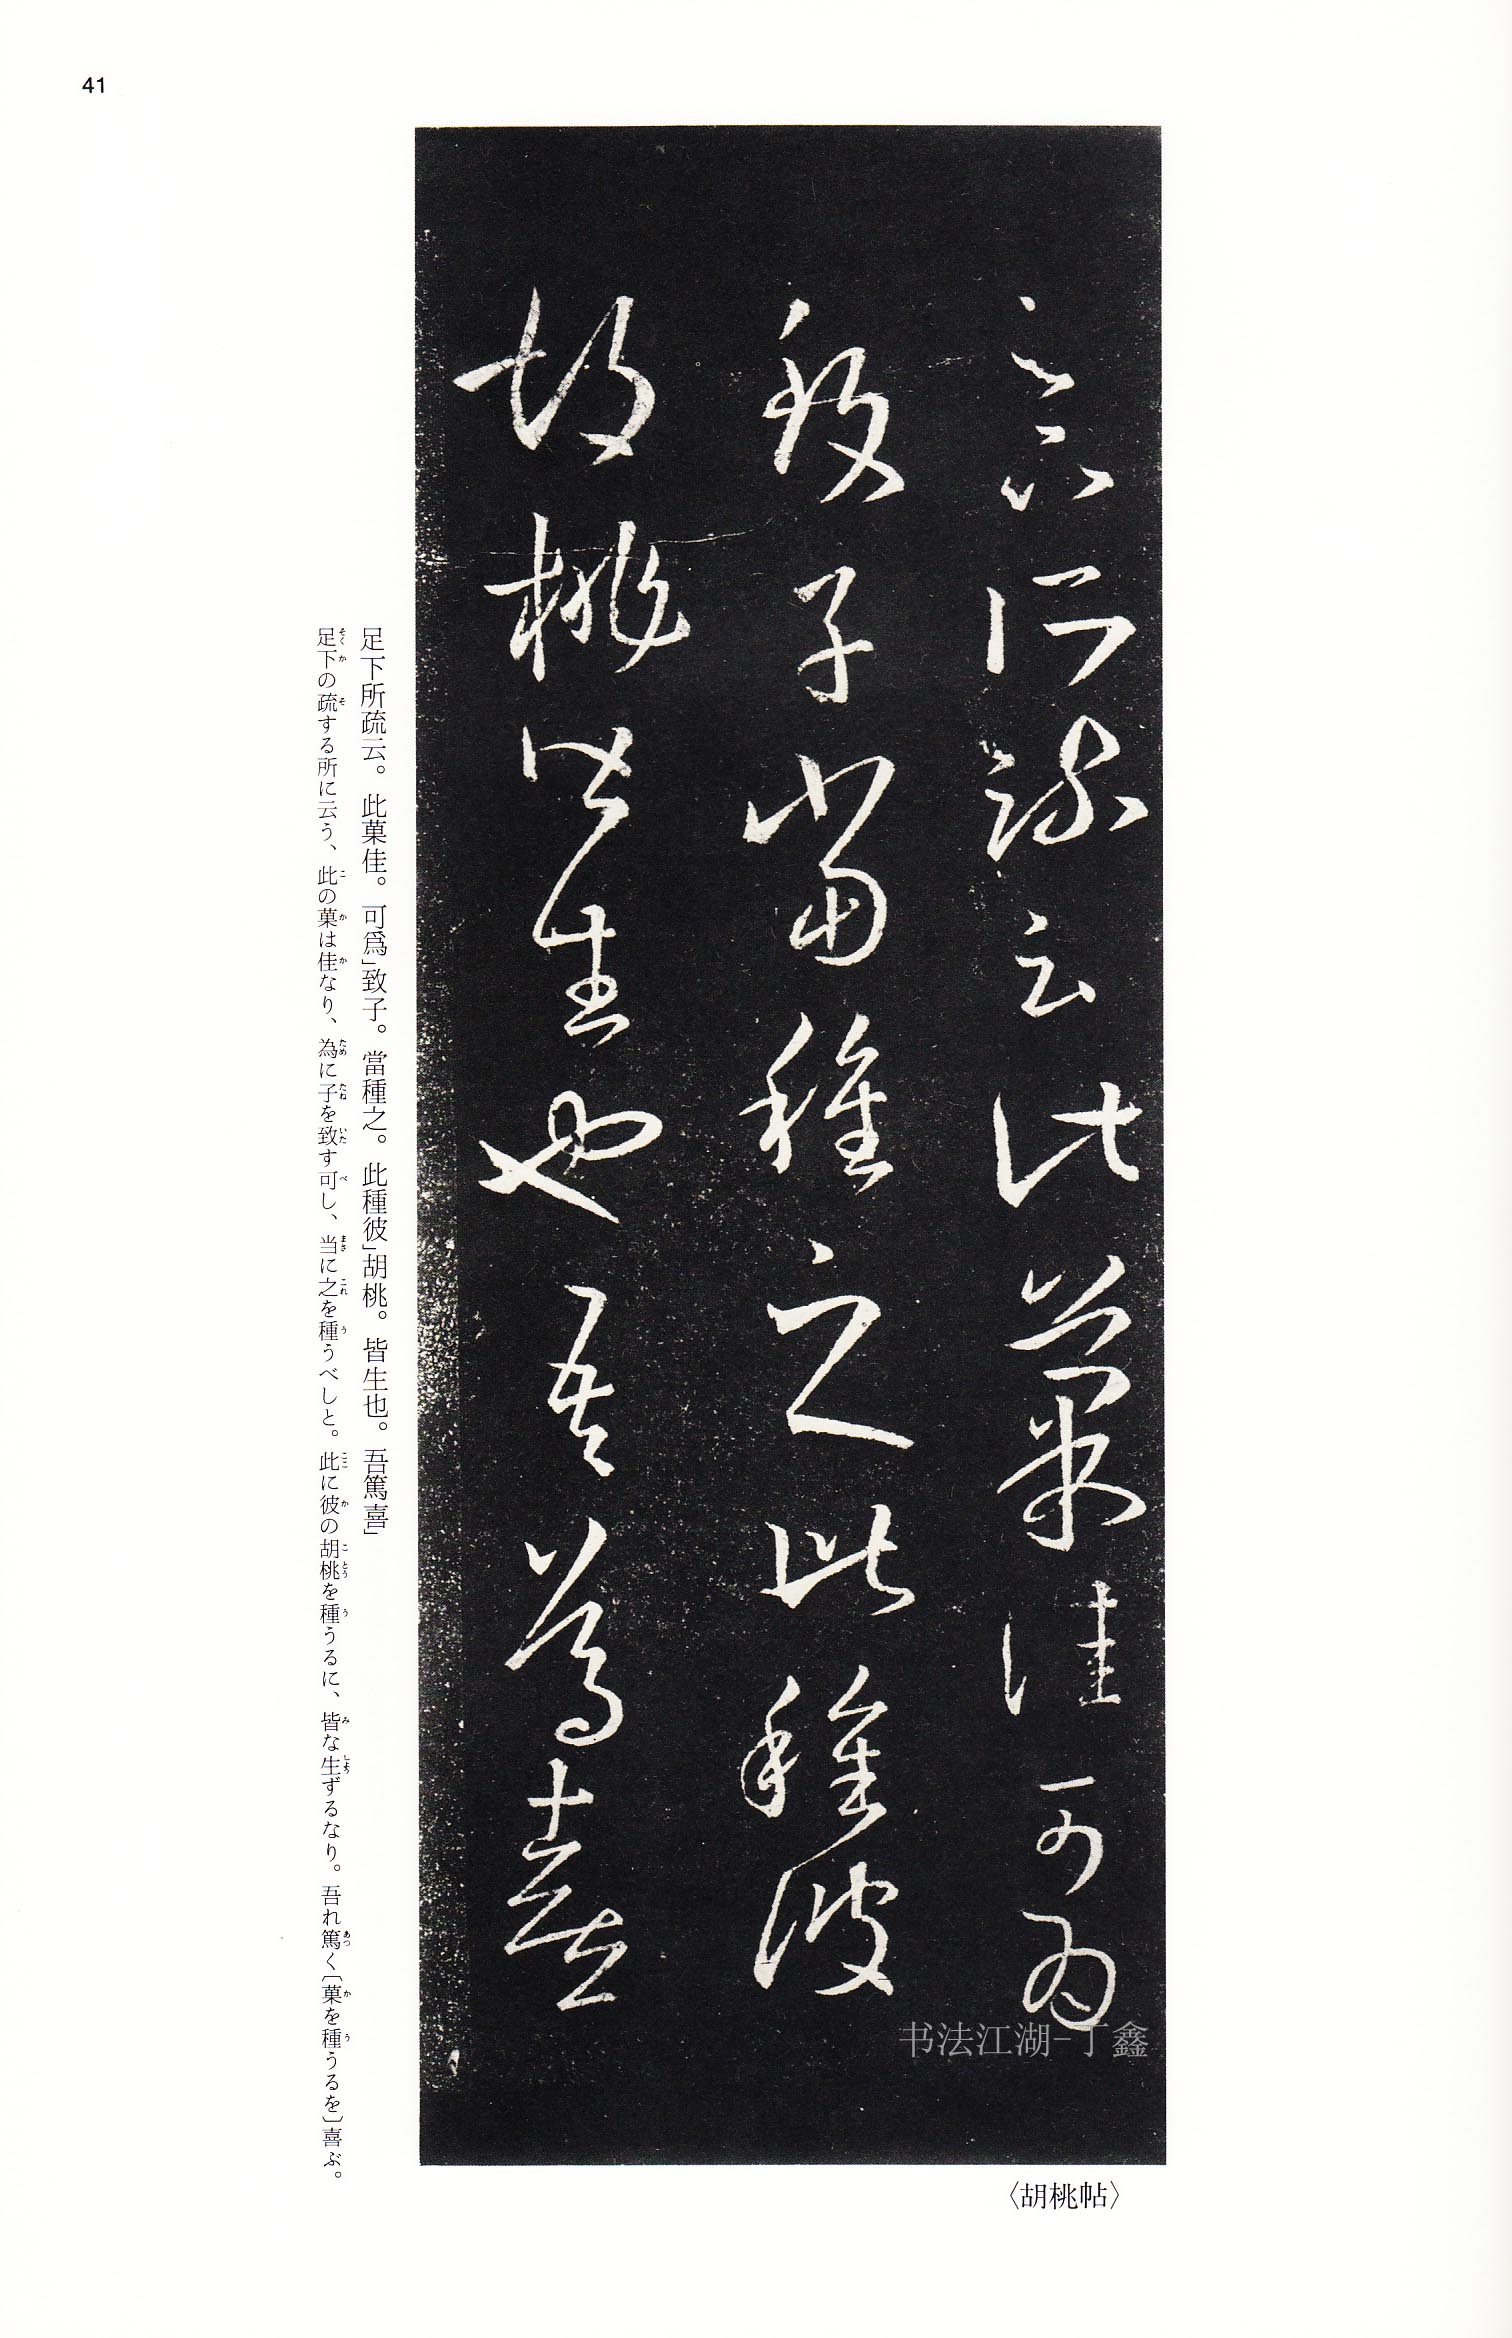 41
足下所疏云此菓佳可爲
致子當種之此種彼
胡桃皆生也吾篤喜
书法江湖-丁鑫
〈胡桃帖〉
足下所疏云。此菓佳。可爲」致子。當種之。此種彼」胡桃。皆生也。吾篤喜」
足下の疏する所に云う、此の菓は佳なり、為に子を致す可し、当に之を種うべしと。此に彼の胡桃を種うるに、皆な生ずるなり。吾れ篤く〔菓を種うるを〕喜ぶ。